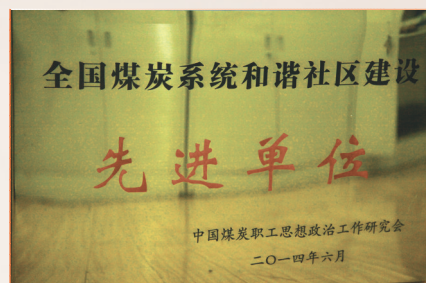 全国煤炭系统和谐社区建设
先进单位
中国煤炭职工思想政治工作研究会
二〇一四年六月